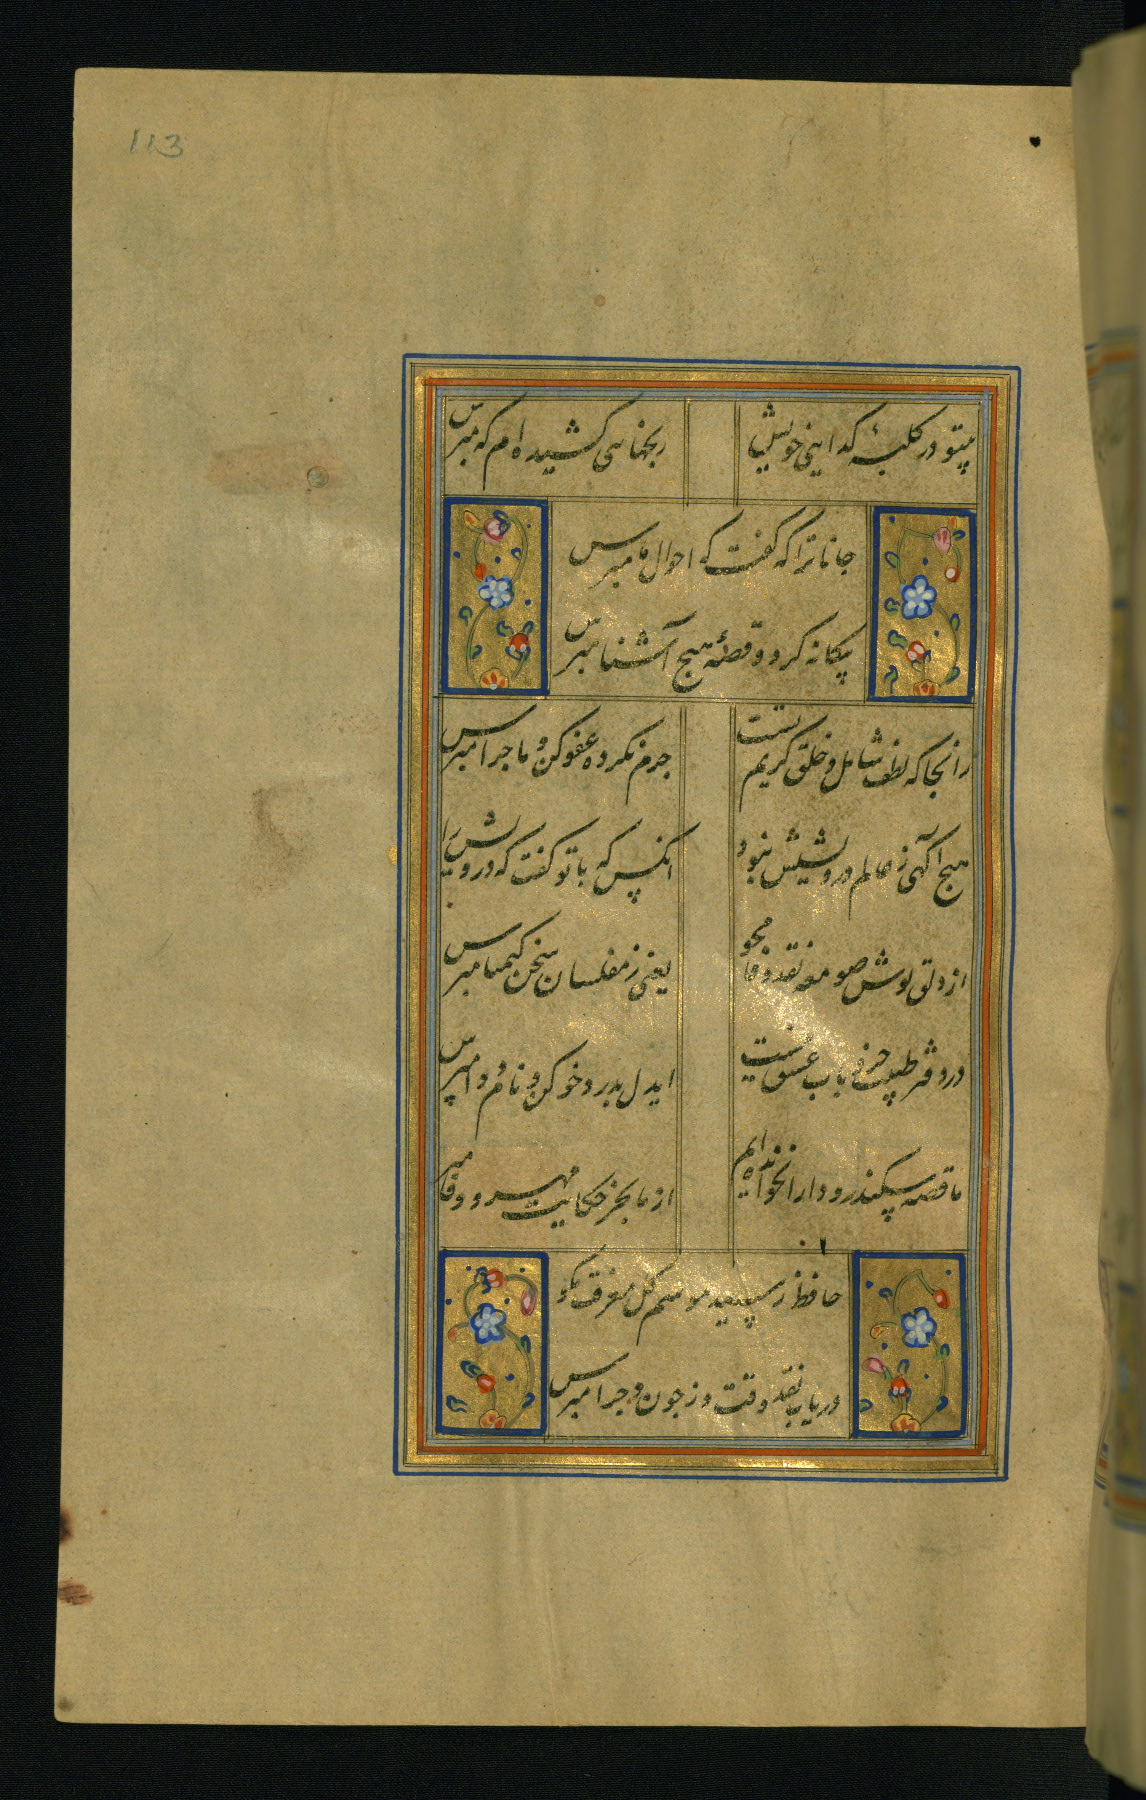 113
بیتو در کلبهٔ گدایی خویش
رنجهایی کشیده‌ام که مپرس
جانا ترا که گفت که احوال ما مپرس
بیگانه گرد و قصهٔ هیچ آشنا مپرس
زانجا که لطف شامل و خلق کریم تست
جرم نکرده عفو کن و ماجرا مپرس
هیچ آگهی ز عالم درویشیش نبود
آنکس که با تو گفت که درویش را مپرس
از دلق پوش صومعه نقد وفا مجو
یعنی ز مفلسان سخن کیمیا مپرس
در دفتر طبیب خرد باب عشق نیست
ایدل بدرد خو کن و نام دوا مپرس
ما قصهٔ سکندر و دارا نخوانده‌ایم
از ما بجز حکایت مهر و وفا مپرس
حافظ رسید موسم گل معرفت مگو
دریاب نقد وقت و ز چون و چرا مپرس